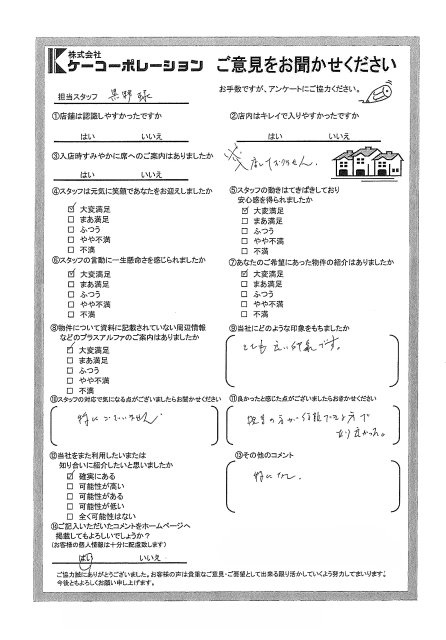 株式会社
ケーコーポレーション ご意見をお聞かせください
担当スタッフ 様
お手数ですが、アンケートにご協力ください。
①店舗は認識しやすかったですか
はい いいえ
②店内はキレイで入りやすかったですか
はい いいえ
③入店時すみやかに席へのご案内はありましたか
はい いいえ
※入店しておりません。
④スタッフは元気に笑顔であなたをお迎えしましたか
☑ 大変満足
□ まあ満足
□ ふつう
□ やや不満
□ 不満
⑤スタッフの動きはてきぱきしており
安心感を得られましたか
☑ 大変満足
□ まあ満足
□ ふつう
□ やや不満
□ 不満
⑥スタッフの言動に一生懸命さを感じられましたか
☑ 大変満足
□ まあ満足
□ ふつう
□ やや不満
□ 不満
⑦あなたのご希望にあった物件の紹介はありましたか
☑ 大変満足
□ まあ満足
□ ふつう
□ やや不満
□ 不満
⑧物件について資料に記載されていない周辺情報
などのプラスアルファのご案内はありましたか
☑ 大変満足
□ まあ満足
□ ふつう
□ やや不満
□ 不満
⑨当社にどのような印象をもちましたか
とても良い印象です。
⑩スタッフの対応で気になる点がございましたらお聞かせください
特にございません
⑪良かったと感じた点がございましたらお聞かせください
担当の方が信頼できる方で
あり良かった。
⑫当社をまた利用したいまたは
知り合いに紹介したいと思いましたか
☑ 確実にある
□ 可能性が高い
□ 可能性がある
□ 可能性が低い
□ 全く可能性はない
⑬その他のコメント
特になし
⑭ご記入いただいたコメントをホームページへ
掲載してもよろしいでしょうか？
(お客様の個人情報は十分に配慮致します)
はい いいえ
ご協力誠にありがとうございました。お客様の声は貴重なご意見・ご要望として出来る限り活かしていくよう努力してまいります。
今後ともよろしくお願い申し上げます。